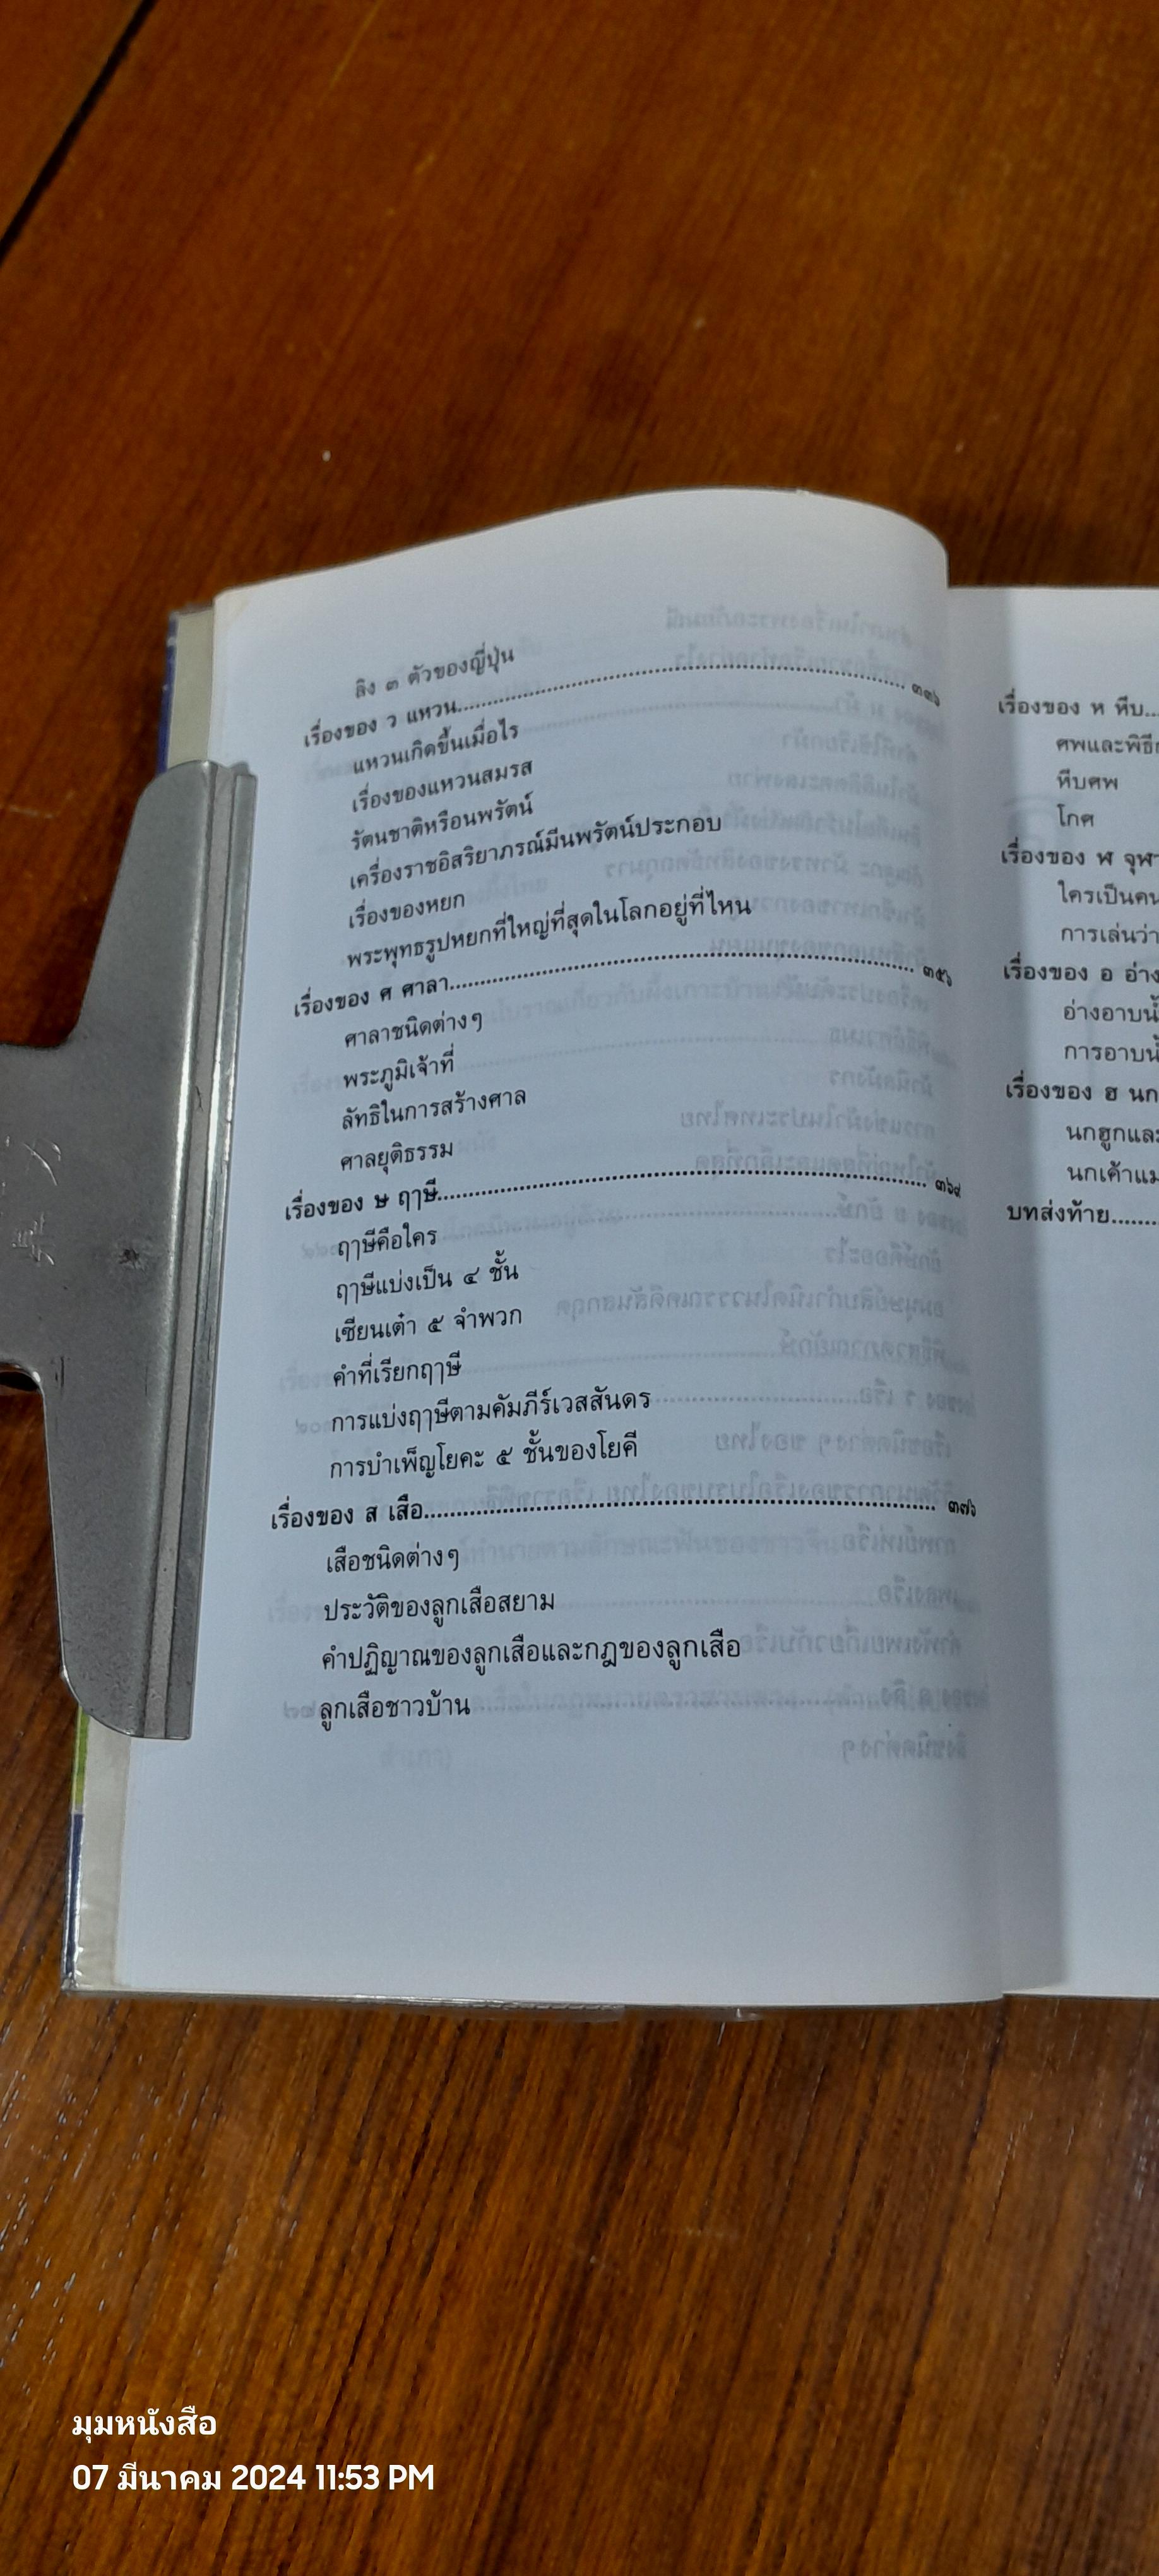 ลิง ๓ ตัวของญี่ปุ่น
เรื่องของ ว แหวน.......................................................................... ๓๓๖
แหวนเกิดขึ้นเมื่อไร
เรื่องของแหวนสมรส
รัตนชาติหรือนพรัตน์
เครื่องราชอิสริยาภรณ์มีนพรัตน์ประกอบ
เรื่องของหยก
พระพุทธรูปหยกที่ใหญ่ที่สุดในโลกอยู่ที่ไหน
เรื่องของ ศ ศาลา.......................................................................... ๓๕๖
ศาลาชนิดต่างๆ
พระภูมิเจ้าที่
ลัทธิในการสร้างศาล
ศาลยุติธรรม
เรื่องของ ษ ฤๅษี.......................................................................... ๓๖๙
ฤๅษีคือใคร
ฤๅษีแบ่งเป็น ๔ ชั้น
เซียนเต๋า ๕ จำพวก
คำที่เรียกฤๅษี
การแบ่งฤๅษีตามคัมภีร์เวสสันดร
การบำเพ็ญโยคะ ๕ ชั้นของโยคี
เรื่องของ ส เสือ.......................................................................... ๓๗๖
เสือชนิดต่างๆ
ประวัติของลูกเสือสยาม
คำปฏิญาณของลูกเสือและกฎของลูกเสือ
ลูกเสือชาวบ้าน
เรื่องของ ห หีบ...
ศพและ
หีบศพ
โกศ
เรื่องของ ฬ
ใครเป็น
การเล่น
เรื่องของ อ อ่าง
อ่างอาบ
การอาบ
เรื่องของ ฮ นก
นกฮูกและ
นกเค้า
บทส่งท้าย.......
มุมหนังสือ
07 มีนาคม 2024 11:53 PM